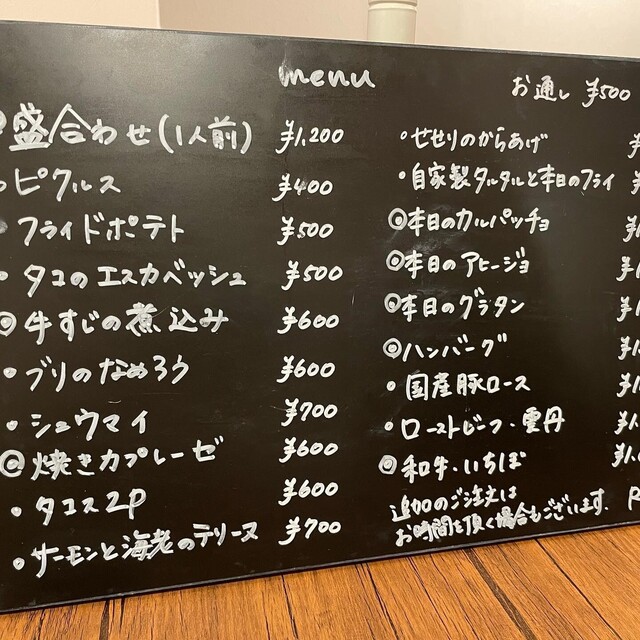 menu
お通し ¥500
◎盛合わせ(1人前) ¥1,200
・ピクルス ¥400
・フライドポテト ¥500
・タコのエスカベッシュ ¥500
◎牛すじの煮込み ¥600
・ブリのなめろう ¥600
・シュウマイ ¥700
◎焼きカプレーゼ ¥600
・タコス2P ¥600
・サーモンと海老のテリーヌ ¥700
・せせりのからあげ
・自家製タルタルと本日のフライ
◎本日のカルパッチョ
◎本日のアヒージョ
◎本日のグラタン
◎ハンバーグ
・国産豚ロース
・ローストビーフ・雲丹
◎和牛・いちぼ
追加のご注文は
お時間を頂く場合もございます。